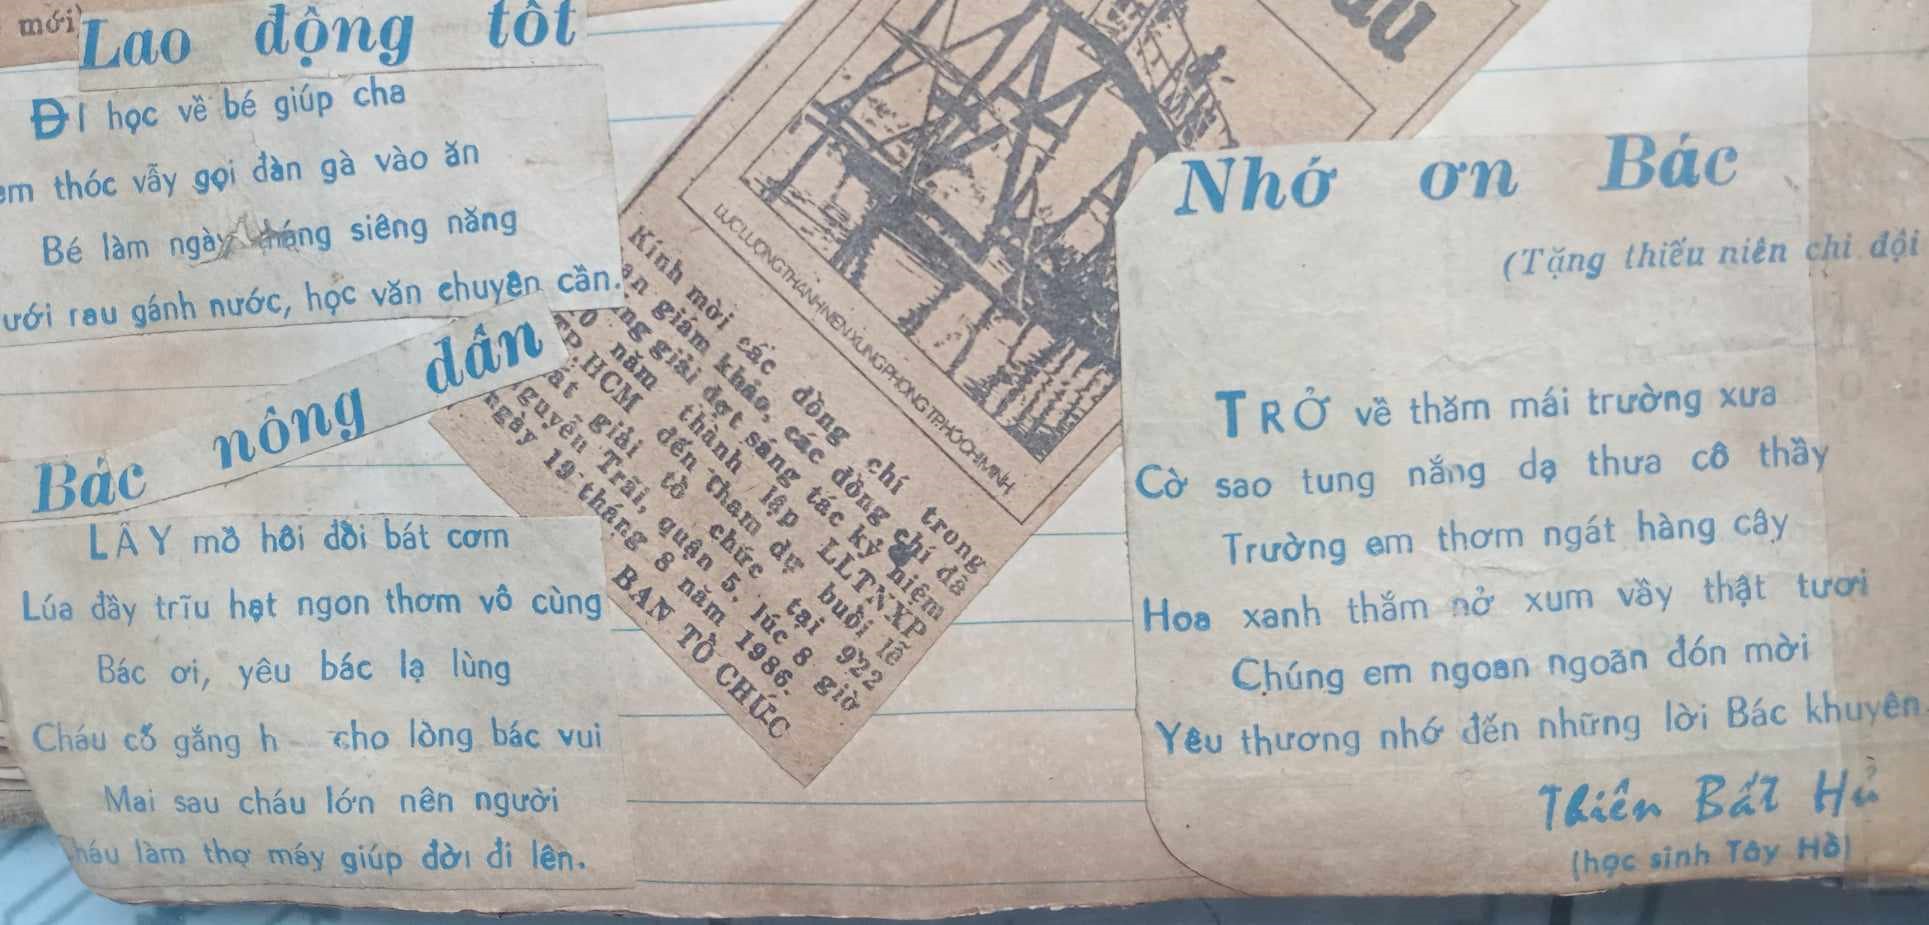 mới)
Lao động tốt
ĐI học về bé giúp cha
thóc vẫy gọi đàn gà vào ăn
Bé làm ngày tháng siêng năng
rau gánh nước, học văn chuyên cần.
Bác nông dân
LẤY mồ hôi đổi bát cơm
Lúa đầy trĩu hạt ngon thơm vô cùng
Bác ơi, yêu bác lạ lùng
Cháu cố gắng h cho lòng bác vui
Mai sau cháu lớn nên người
Cháu làm thợ máy giúp đời đi lên.
LỰC LƯỢNG THANH NIÊN XUNG PHONG TP. HỒ CHÍ MINH
Kính mời các đồng chí trong
an giám khảo, các đồng chí đã
ng giải đợt sáng tác kỷ niệm
10 năm thành lập LLTNXP
TP.HCM đến tham dự buổi lễ
giải tổ chức tại 922
guyễn Trãi, quận 5, lúc 8 giờ
ngày 19 tháng 8 năm 1986.
BAN TỔ CHỨC
Nhớ ơn Bác
(Tặng thiếu niên chi đội
TRỞ về thăm mái trường xưa
Cờ sao tung nắng dạ thưa cô thầy
Trường em thơm ngát hàng cây
Hoa xanh thắm nở xum vầy thật tươi
Chúng em ngoan ngoãn đón mời
Yêu thương nhớ đến những lời Bác khuyên
Thiên Bất Hủ
(học sinh Tây Hồ)